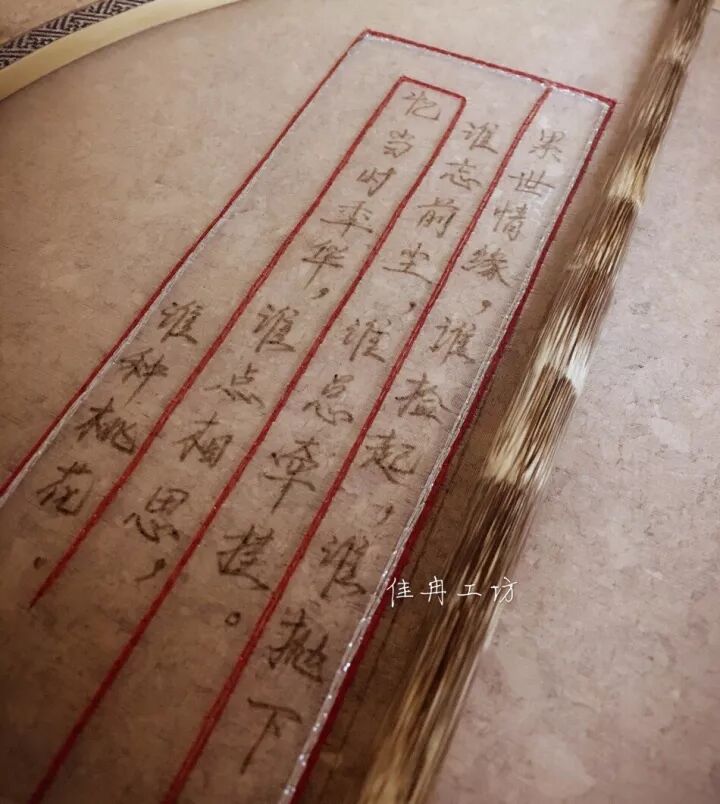 累世情缘，谁捡起，谁抛下
谁忘前尘，谁总牵提。
记当时年华，谁点相思，
谁种桃花.
佳冉工坊